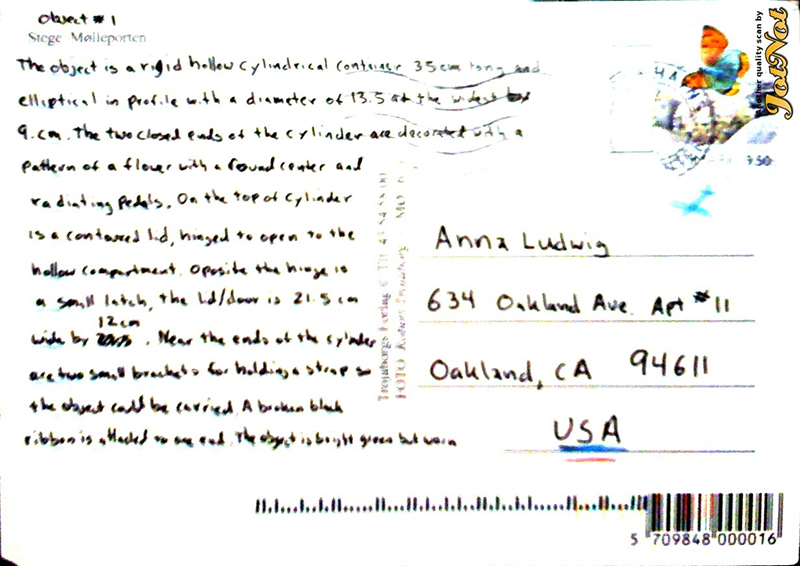 Object #1
Stege Mølleporten
The object is a rigid hollow cylindrical container 35cm long and
elliptical in profile with a diameter of 13.5 at the widest by
9.cm. The two closed ends of the cylinder are decorated with a
pattern of a flower with a round center and
radiating pedals. On the top of cylinder
is a contoured lid, hinged to open to the
hollow compartment. Oposite the hinge is
a small latch, the lid/door is 21.5 cm
12cm
wide by . Near the ends of the cylinder
are two small brackets for holding a strap so
the object could be carried. A broken black
ribbon is attached to one end. The object is bright green but worn
Anna Ludwig
634 Oakland Ave. Apt #11
Oakland, CA 94611
USA
9.50
5 709848 000016
quality scan by
JotNot
FOTO